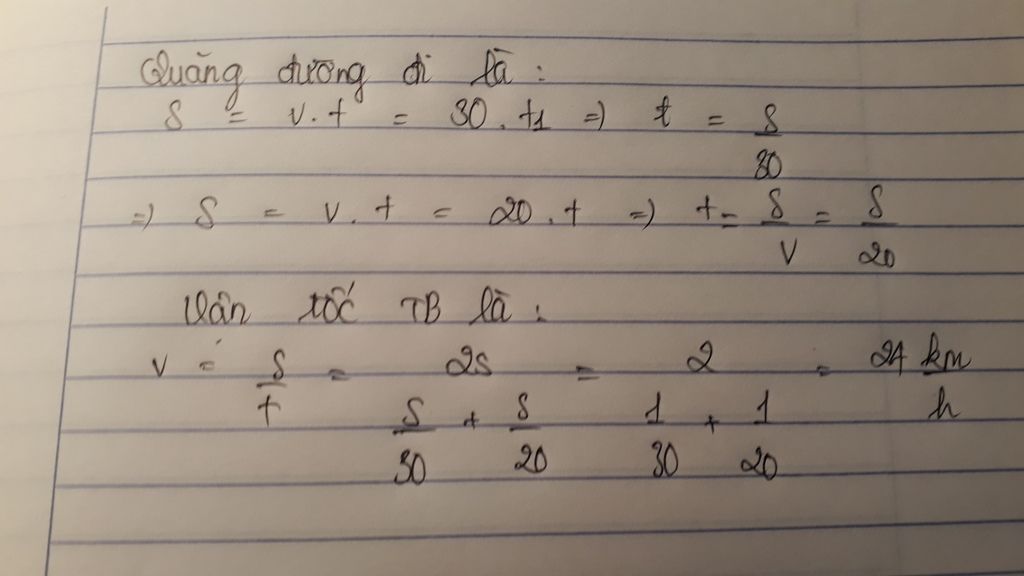 Quãng đường đi là :
S = v.t = 30.t1 => t = S/30
=> S = v.t = 20.t => t = S/v = S/20
Vân tốc TB là :
v = S/t = 2s/(S/30 + S/20) = 2/(1/30 + 1/20) = 24 km/h